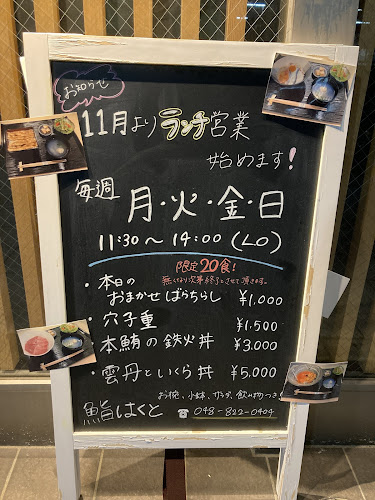 お知らせ
11月よりランチ営業
始めます!
毎週
月・火・金・日
11:30〜14:00(LO)
限定20食!
無くなり次第終了とさせて頂きます。
・本日の
おまかせばらちらし ¥1.000
・穴子重 ¥1.500
本鮪の鉄火丼 ¥3.000
・雲丹といくら丼 ¥5.000
お椀、小鉢、サラダ、飲み物つき
鮨はくと ☎048-822-0404